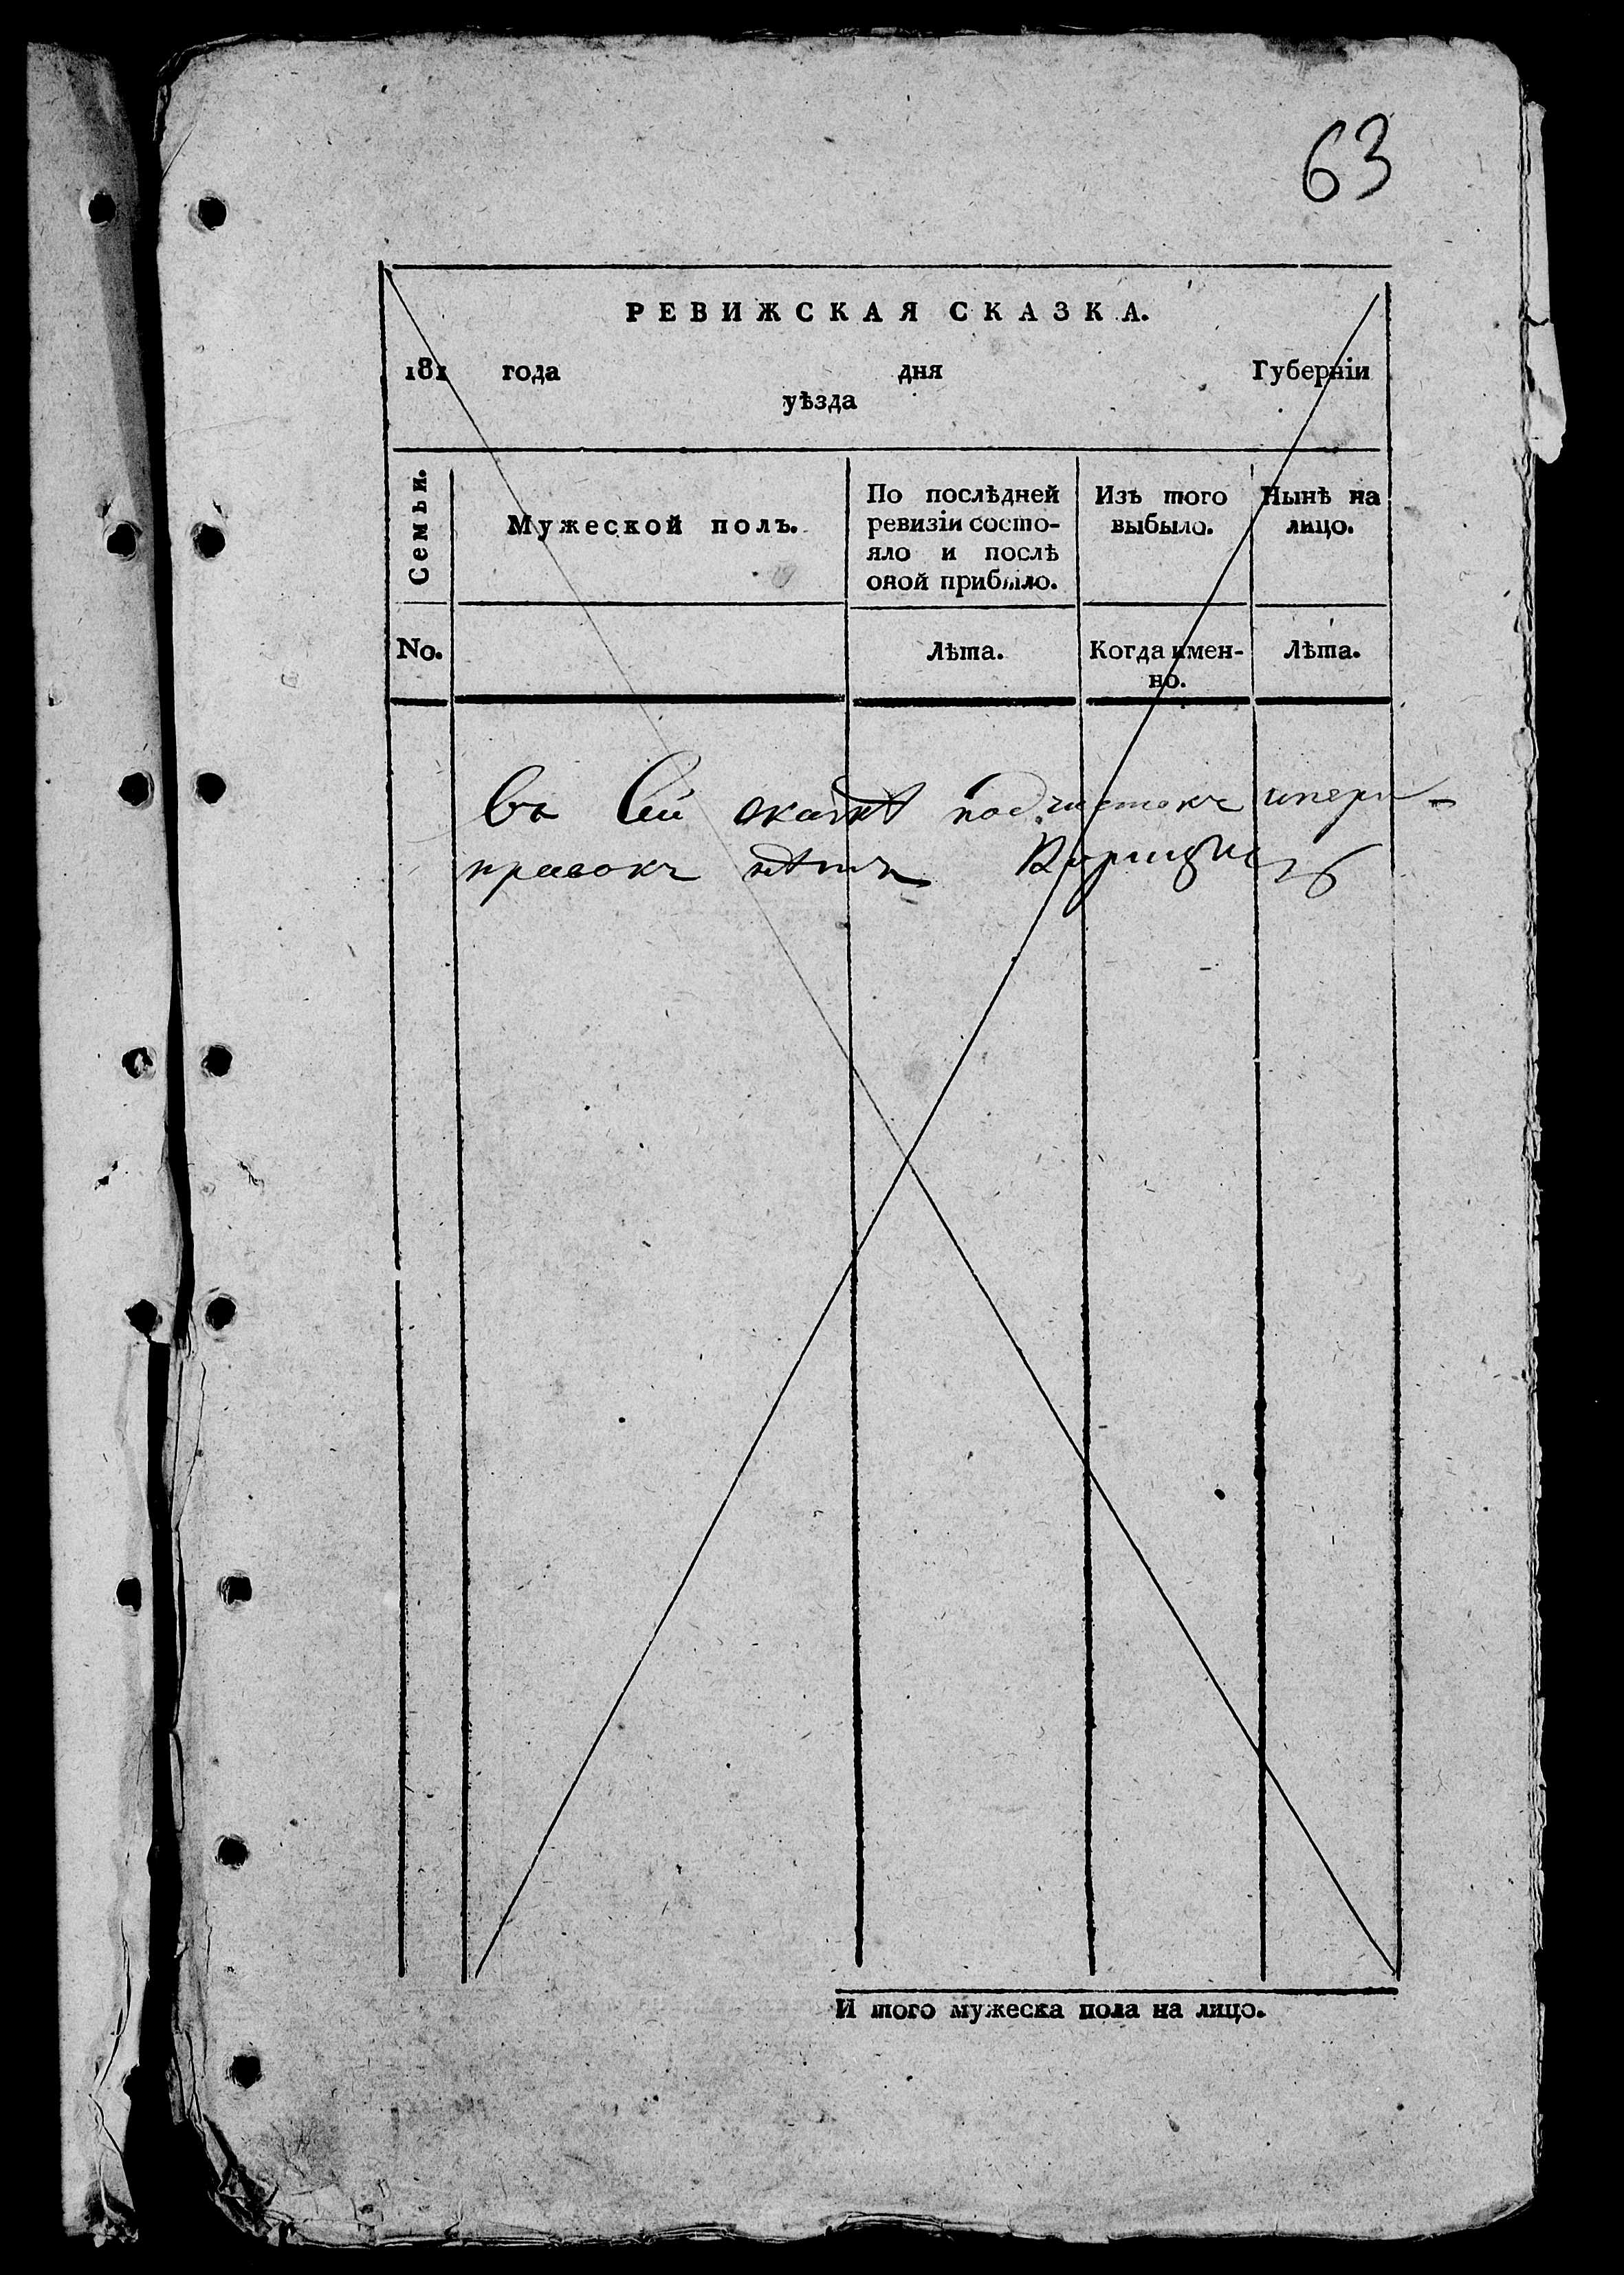 63
РЕВИЖСКАЯ СКАЗКА.
181 года дня Губерніи
уѣзда
Семьи.
Мужеской полъ.
По послѣдней
ревизіи состо-
яло и послѣ
оной прибыло.
Изъ того
выбыло.
Нынѣ на
лицо.
No.
Лѣта.
Когда имен-
но.
Лѣта.
въ Сей сказкѣ подчистокъ ипере-
правокъ нѣтъ
И того мужеска пола на лицо.